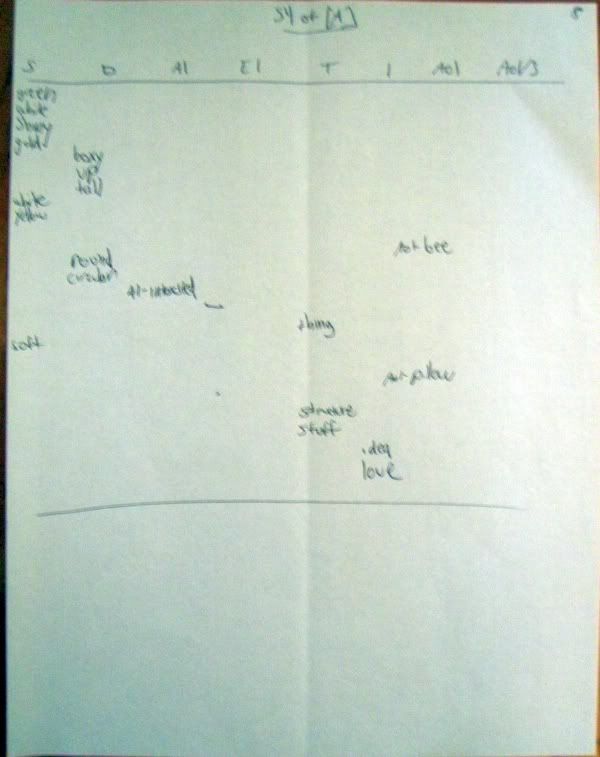 S4 of [A] 8
S D AI EI T I AOL AOL/S
green
white
shiny
gold
boxy
up
tall
white
yellow
AOL-bee
round
circular
AI-interested
thing
soft
AOL-pillow
structure
stuff
idea
love